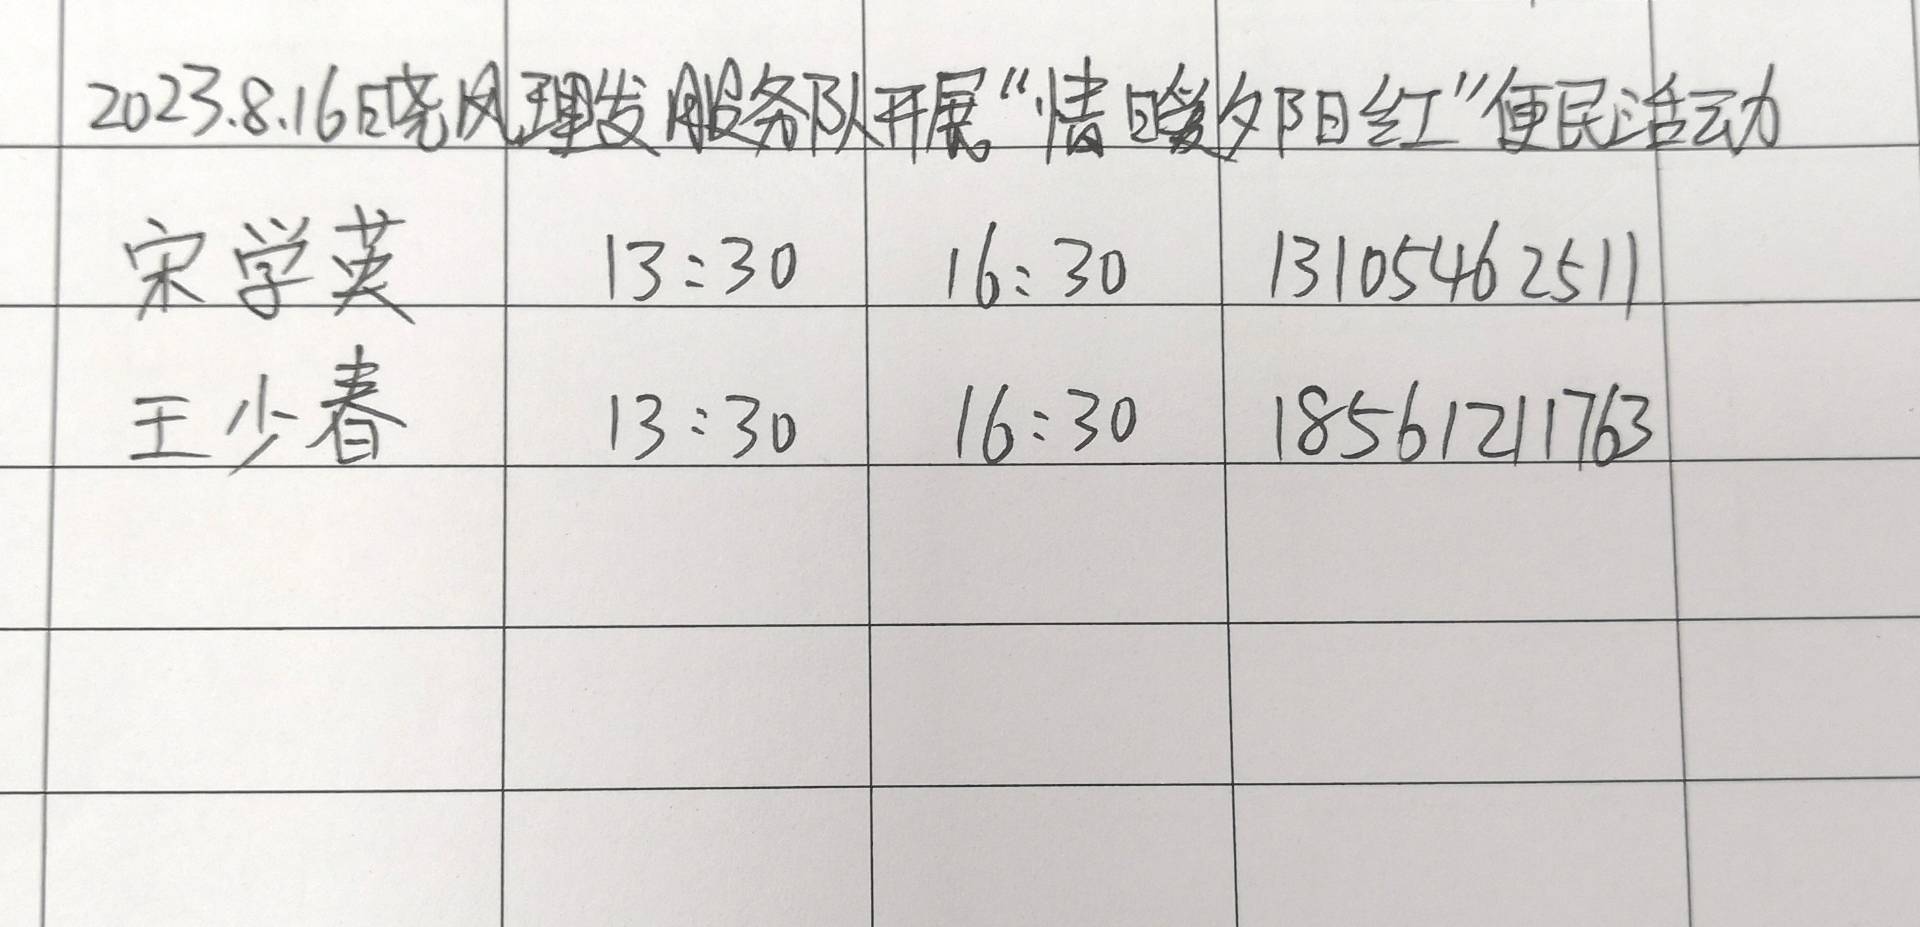 2023.8.16晓风理发服务队开展“情暖夕阳红”便民活动
宋学英 13:30 16:30 13105462511
王少春 13:30 16:30 18561211763